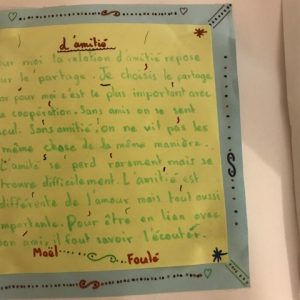 d'amitié
our moi la relation d'amitié repose
ur le partage. Je choisis le partage
ar pour moi c'est le plus important avec
e coopération. Sans amis on se sent
eul. Sans amitié, on ne vit pas les
même chose de la même manière.
L'amitié se perd rarement mais se
trouve difficilement. L'amitié est
différente de l'amour mais tout aussi
mportante. Pour être en lien avec
on ami, il faut savoir l'écouter.
Maël Foulé